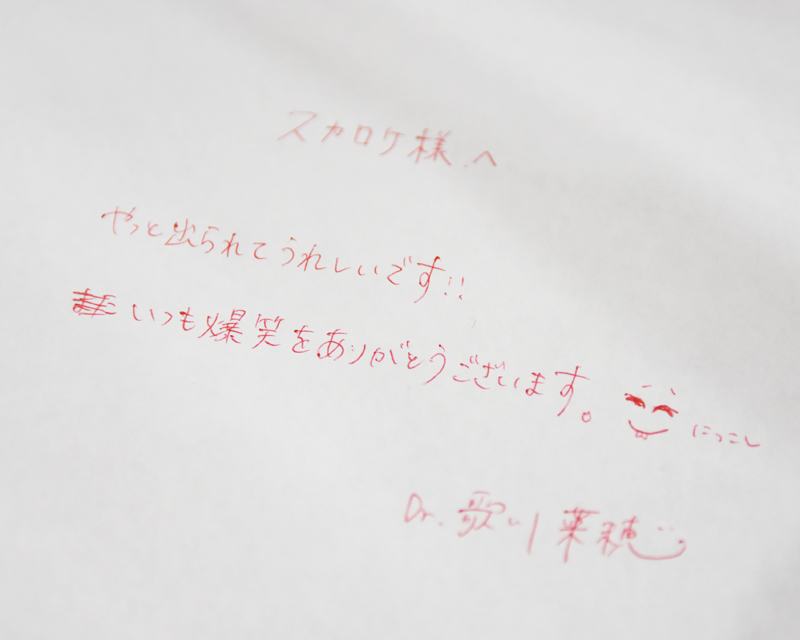 スカロケ様へ
やっと出られてうれしいです!!
いつも爆笑をありがとうございます。 にっこし
Dr. 歌川菜穂